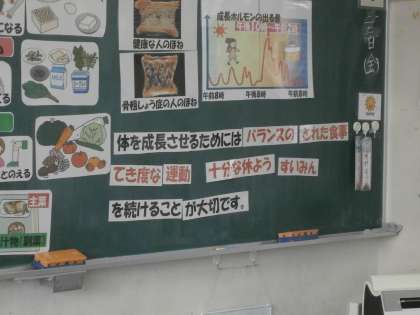 になる
健康な人のほね
骨粗しょう症の人のほね
成長ホルモンの出る量
午後10時〜午前2時
午前8時 午後8時 午前8時
とのえる
主菜
汁物 副菜
日(金)
体を成長させるためには バランスの とれた食事
てき度な 運動 十分な休よう すいみん
を続けること が大切です。